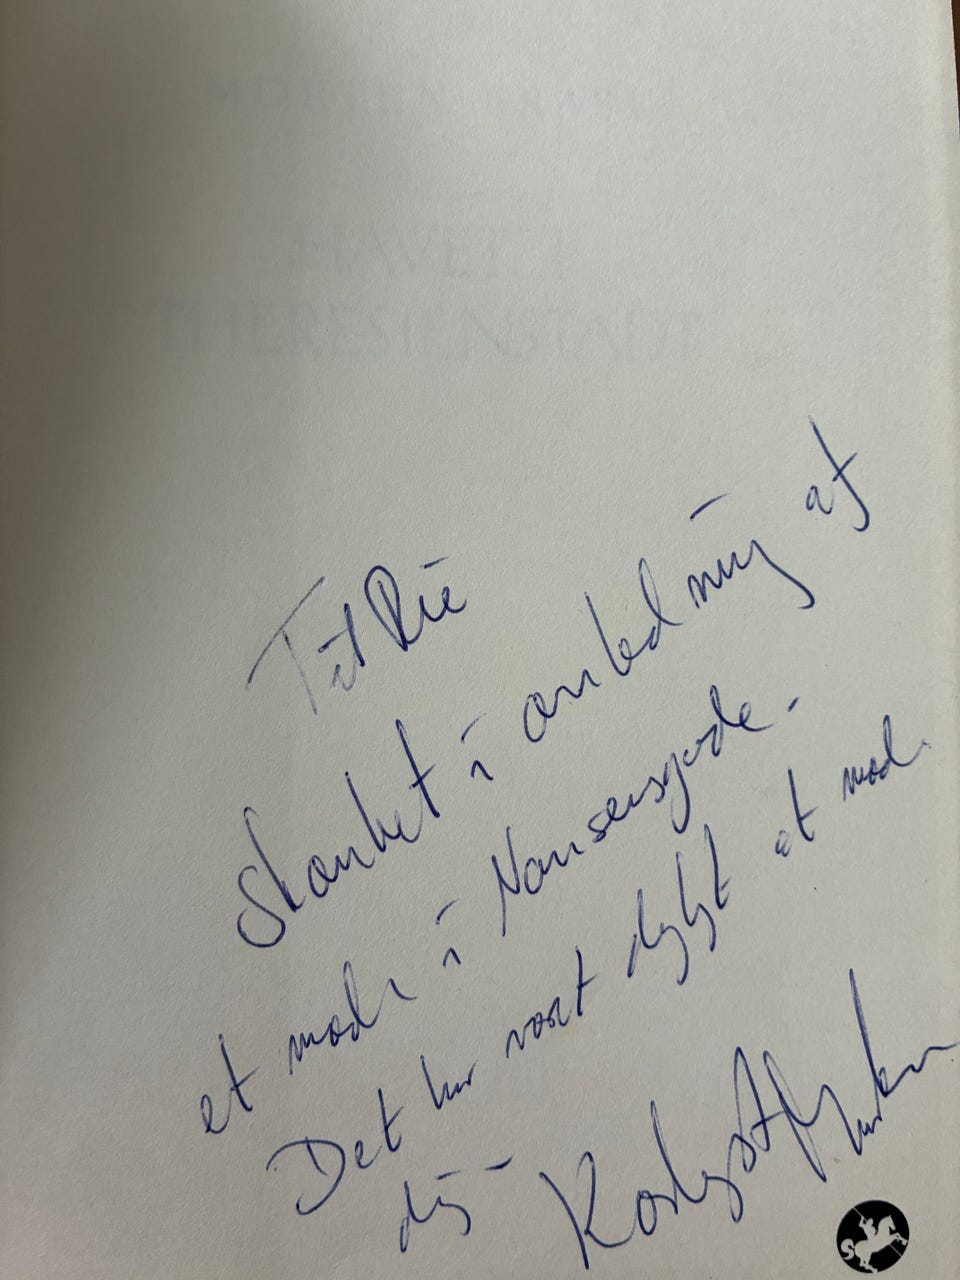 MORTEN BRASK
HAVET I
THERESIENSTADT
Til Rie
Skænket i anledning af
et møde i Nansensgade.
Det har været dejligt at møde
dig -